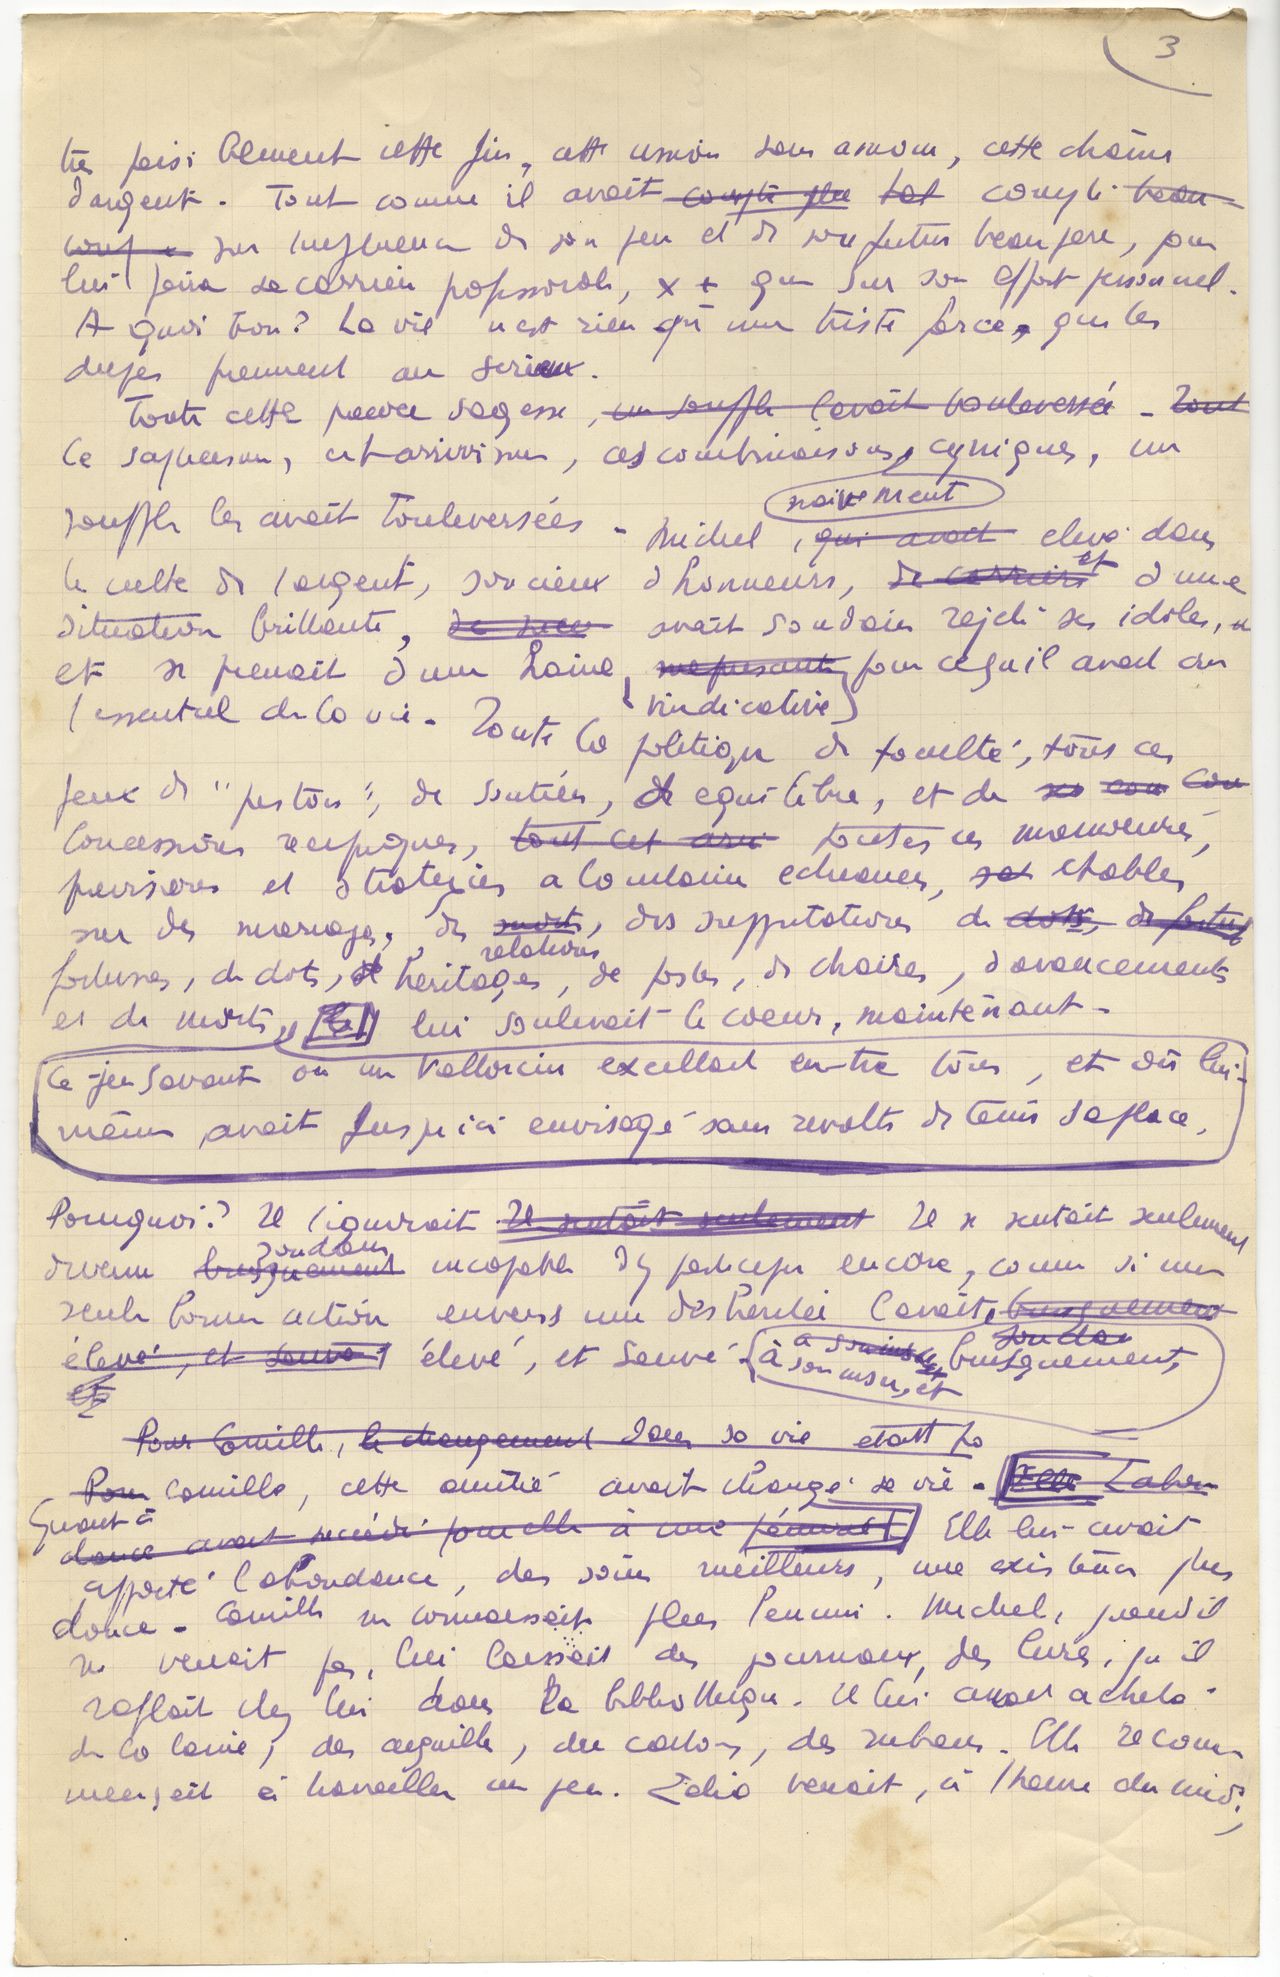 3
très paisiblement cette fin, cette union sans amour, cette chaîne
d'argent. Tout comme il avait compté plus tot compté beau-
coup sur l'influence de son père et de son futur beau père, pour
lui faire sa carrière professorale, x + que sur son effort personnel.
A quoi bon? La vie n'est rien qu'une triste farce, que les
dupes prennent au serieux.
Toute cette pauvre sagesse, un souffle l'avait bouleversée - Tout
Ce squelisme, cet arrivisme, ces combinaisons cyniques, un
naivement
souffle les avait bouleversées - Michel, qui avait elevé dans
le culte de l'argent, soucieux d'honneurs, de carriere et d'une
situation brillante, avait soudain rejeté ses idoles,
et se prenait d'une haine, meprisante pour ce qu'il avait cru
vindicative
l'essentiel de la vie. Toute la politique de faculté, tous ces
jeux de "pistons", de soutien, d'equilibre, et de con con
Concessions reciproques, tout cet toutes ces manoeuvres,
previsions et strategies a lointaine echeance, etablies
sur des mariages, des morts, des supputations de dots, de
relations
fortunes, de dots, d'heritages, de postes, de chaires, d'avancements
et de morts, lui soulevait le coeur, maintenant -
Ce jeu savant où un Vallorcin excellait entre tous, et dès lui-
même avait jusqu'ici envisagé sans revolte de tenir sa place.
Pourquoi? Il l'ignorait Il sentait seulement Il se sentait seulement
soudain
devenu brusquement incapable d'y participer encore, comme si une
seule bonne action envers une déshéritée l'avait, brusquement
élevé, et sauvé élevé, et sauvé à son insu, et soudain brusquement,
à son insu, et
et
Pour Camille, le changement dans sa vie etait
Pour Camille, cette amitié avait changé sa vie - Elle L'abon
Quant à
dance avait succédé pour elle à une pénurie Elle lui avait
apporté l'abondance, des soins meilleurs, une existence plus
douce - Camille ne connaissait plus l'ennui. Michel, quand il
ne venait pas, lui laissait des journaux, des livres, qu'il
raflait chez lui dans la bibliothèque. Il lui avait acheté
de la laine, des aiguilles, des cartons, des rubans. Elle recom-
mençait à travailler un peu. Lidia venait, à l'heure du midi,